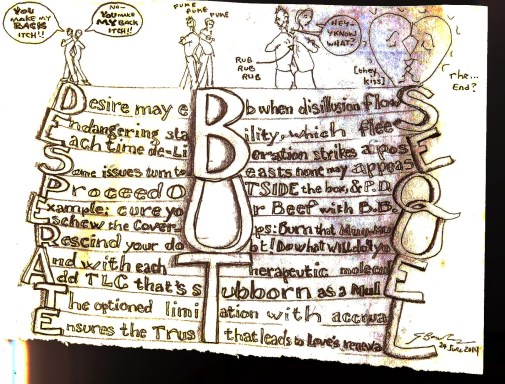 YOU MAKE MY BACK ITCH!!
NO- YOU MAKE MY BACK ITCH!!
PUKE PUKE PUKE
RUB RUB RUB
HEY- Y'KNOW WHAT?
[they kiss]
The... End?
DESPERATE
BUT
SEQUEL
Desire may ebb when disillusion flow
Endangering staBility, which flee
Each time de-LiBeration strikes a pos
Some issues turn to Beasts none may appeas
Proceed OUTSIDE the box, & P.D.
Example: cure your Beef with B.B.
Eschew the Cover Ups: Burn that
Rescind your doubt! Do what will do
And with each Therapeutic molecul
Add TLC that's sTubborn as a Mul
The optioned limiTation with accrua
Ensures the TrusT that leads to Love's renewa